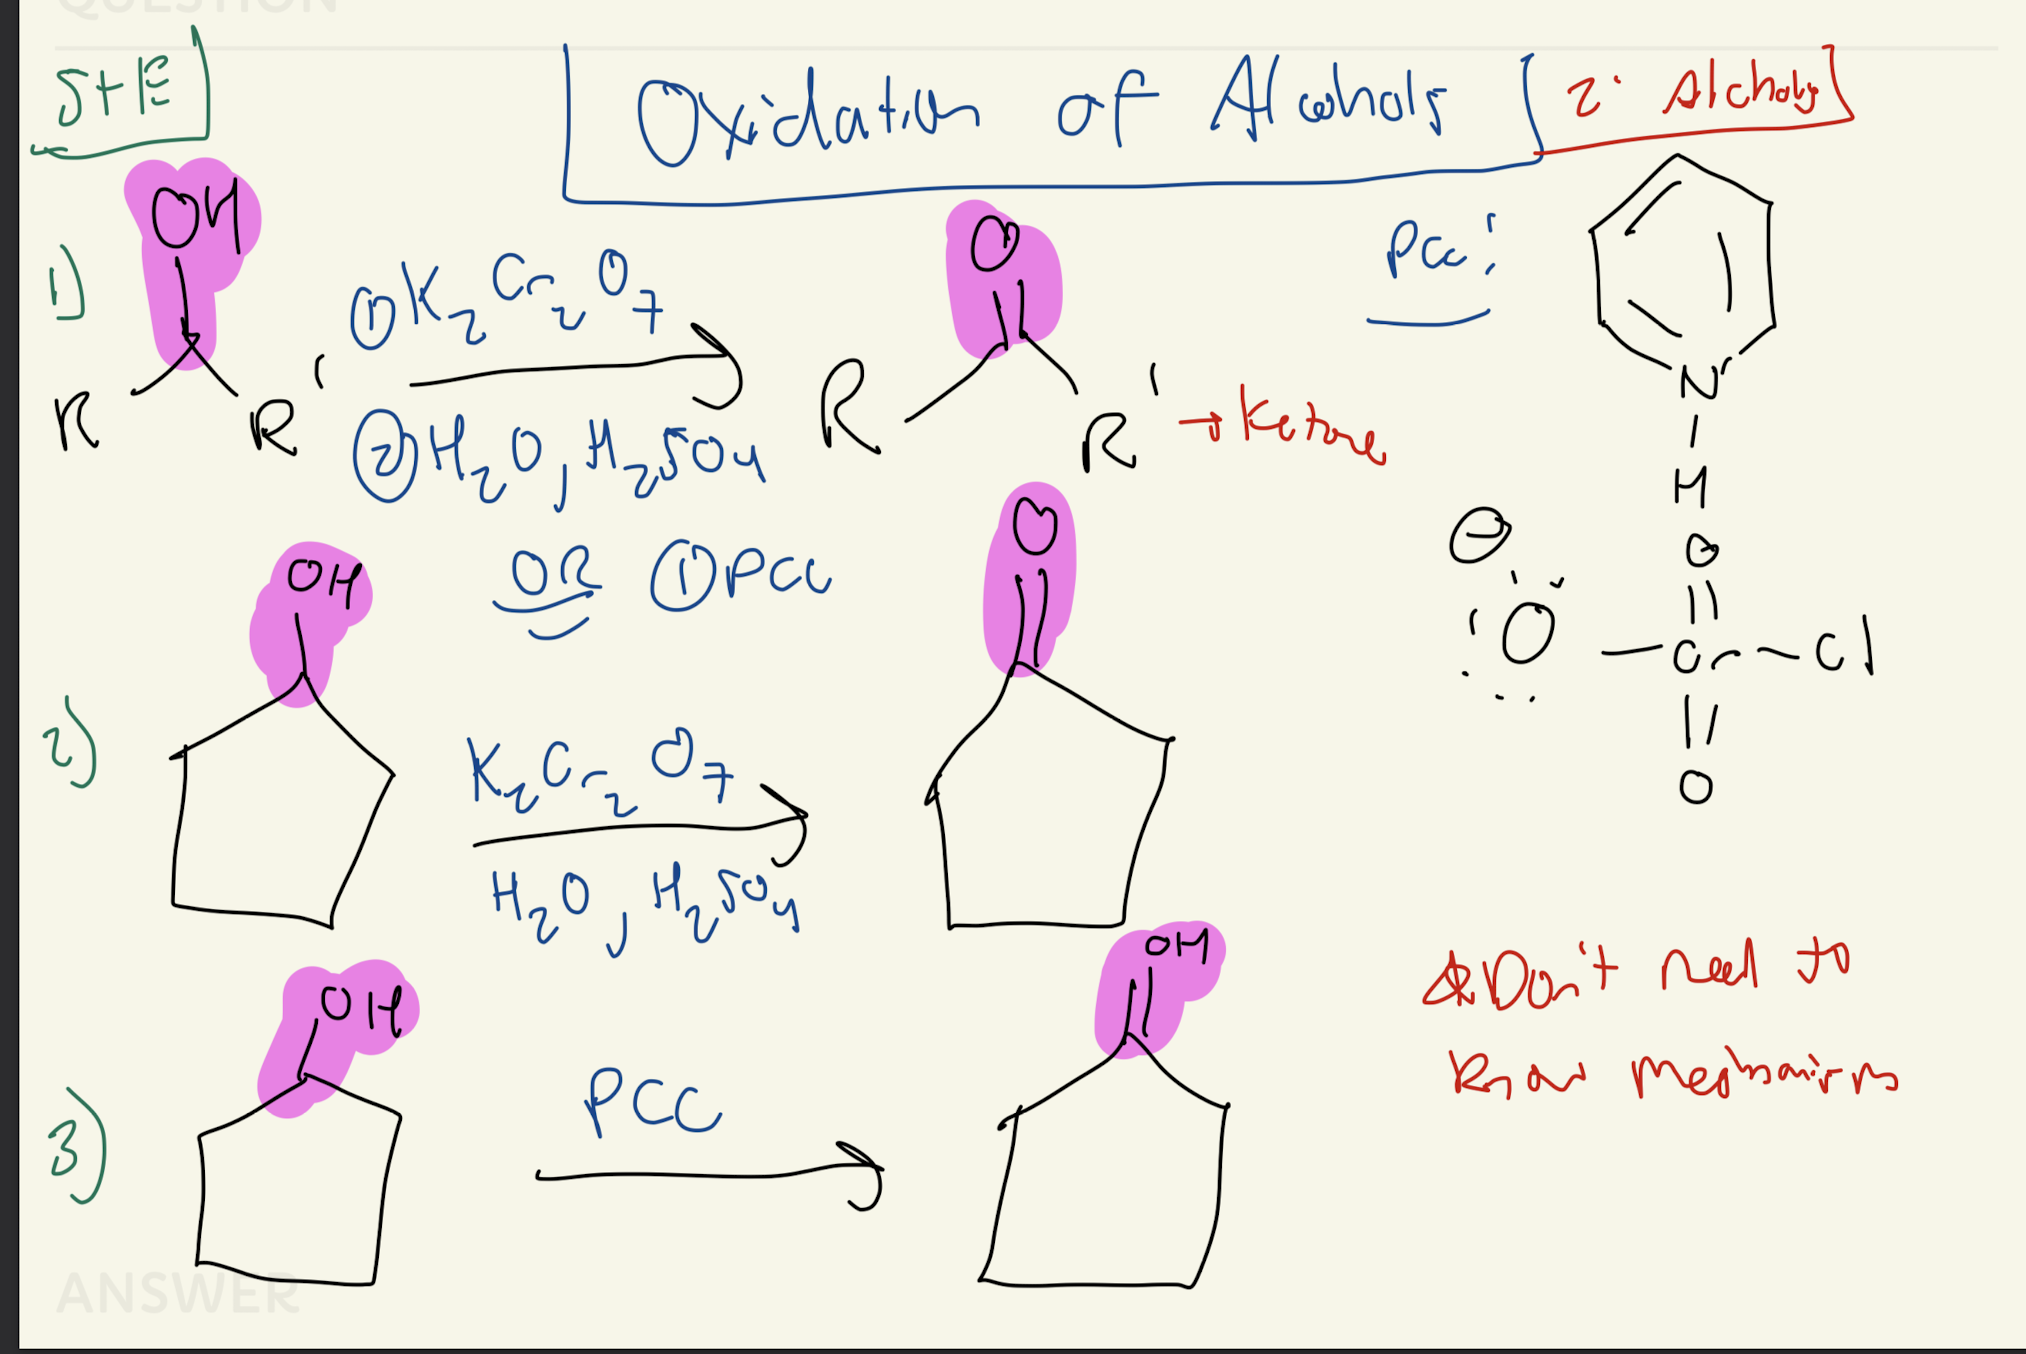 QUESTION
S+E
Oxidation of Alcohols [2° Alchols]
1)
OH
R
R'
① K2Cr2O7
② H2O, H2SO4
OR ① PCC
O
R
R' → Ketone
PCC:
N
H
O
⊖
O
Cr
Cl
O
2)
OH
K2Cr2O7
H2O, H2SO4
O
3)
OH
PCC
OH
* Don't need to
know mechanism
ANSWER